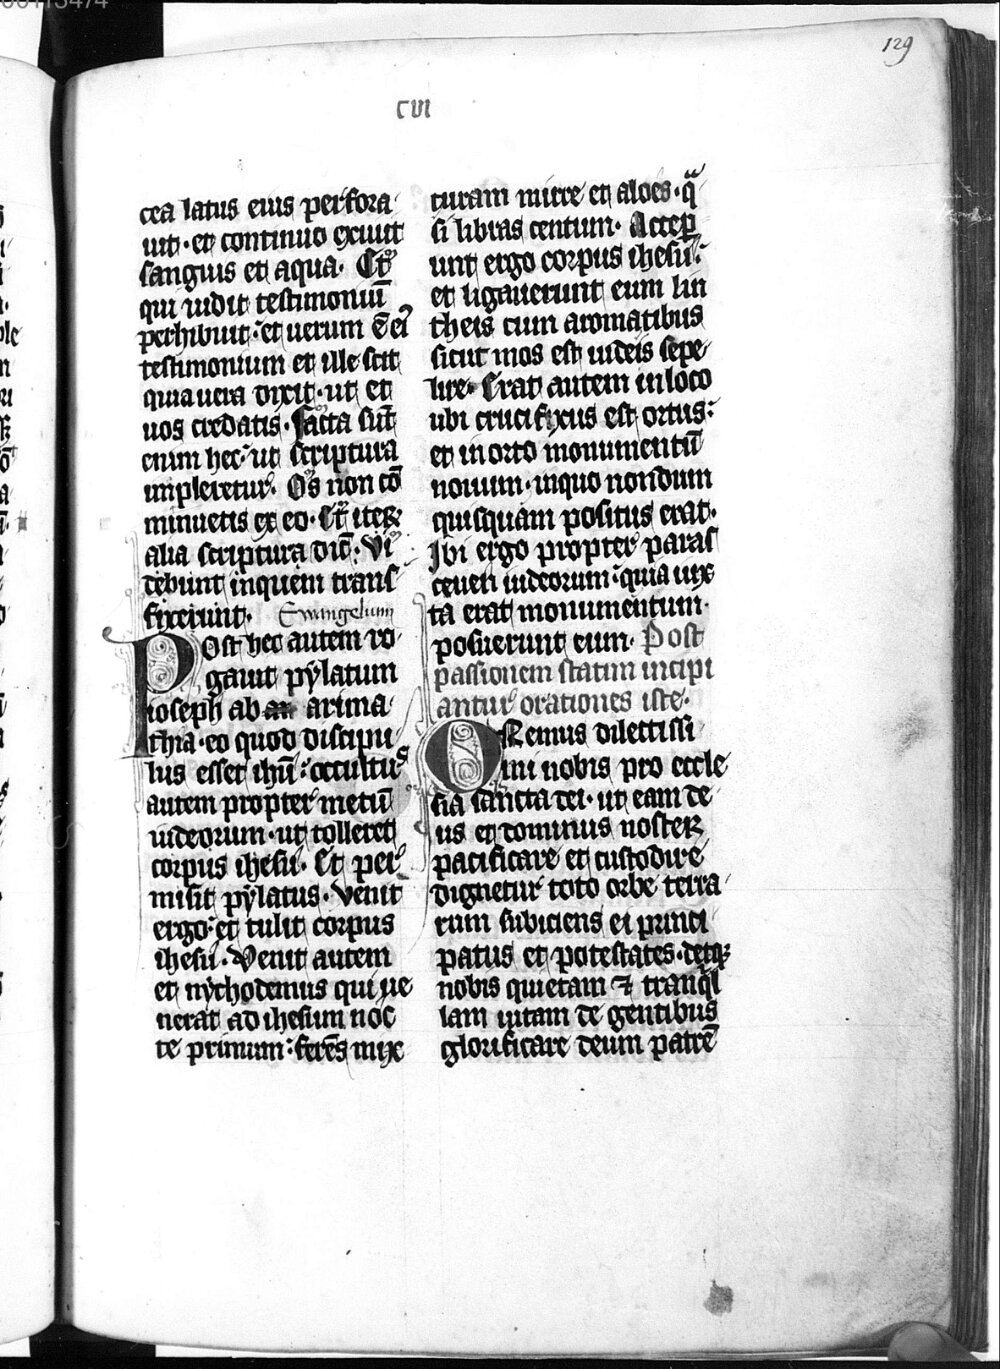 129
cvi
cea latus eius perfora
uit · et continuo exiuit
sanguis et aqua · Et
qui uidit testimoniū
perhibuit : et uerum ē ei⁹
testimonium et ille scit
quia uera dixit · ut et
uos credatis · facta sūt
enim hec · ut scriptura
impleretur · Os non cō
minuetis ex eo · Et iteꝝ
alia scriptura dic̄ · Vi
debunt inquem trans
fixerunt · Ewangelium
Post hec autem ro
gauit pylatum
ioseph ab arima
thia · eo quod discipu
lus esset ihū : occultus
autem propter metū
iudeorum · ut tolleret
corpus ihesu · Et per
misit pylatus · Venit
ergo · et tulit corpus
ihesu · Venit autem
et nychodemus qui ue
nerat ad ihesum noc
te primum : ferēs mix
turam mirre et aloes · q̄
si libras centum · Accep
unt ergo corpus ihesu :
et ligauerunt eum lin
theis cum aromatibus
sicut mos est iudeis sepe
lire · Erat autem in loco
ubi crucifixus est ortus :
et in orto monumentū
nouum · in quo nondum
quisquam positus erat ·
Ibi ergo propter paras
ceuen iudeorum : quia iux
ta erat monumentum ·
posuerunt eum · Post
passionem statim incipi
antur orationes iste ·
ORemus dilectissi
mi nobis pro eccle
sia sancta dei · ut eam de
us et dominus noster
pacificare et custodire
dignetur toto orbe terra
rum subiciens ei princi
patus et potestates · detqꝫ
nobis quietam ⁊ tranqͥl
lam uitam de gentibus
glorificare deum patrē